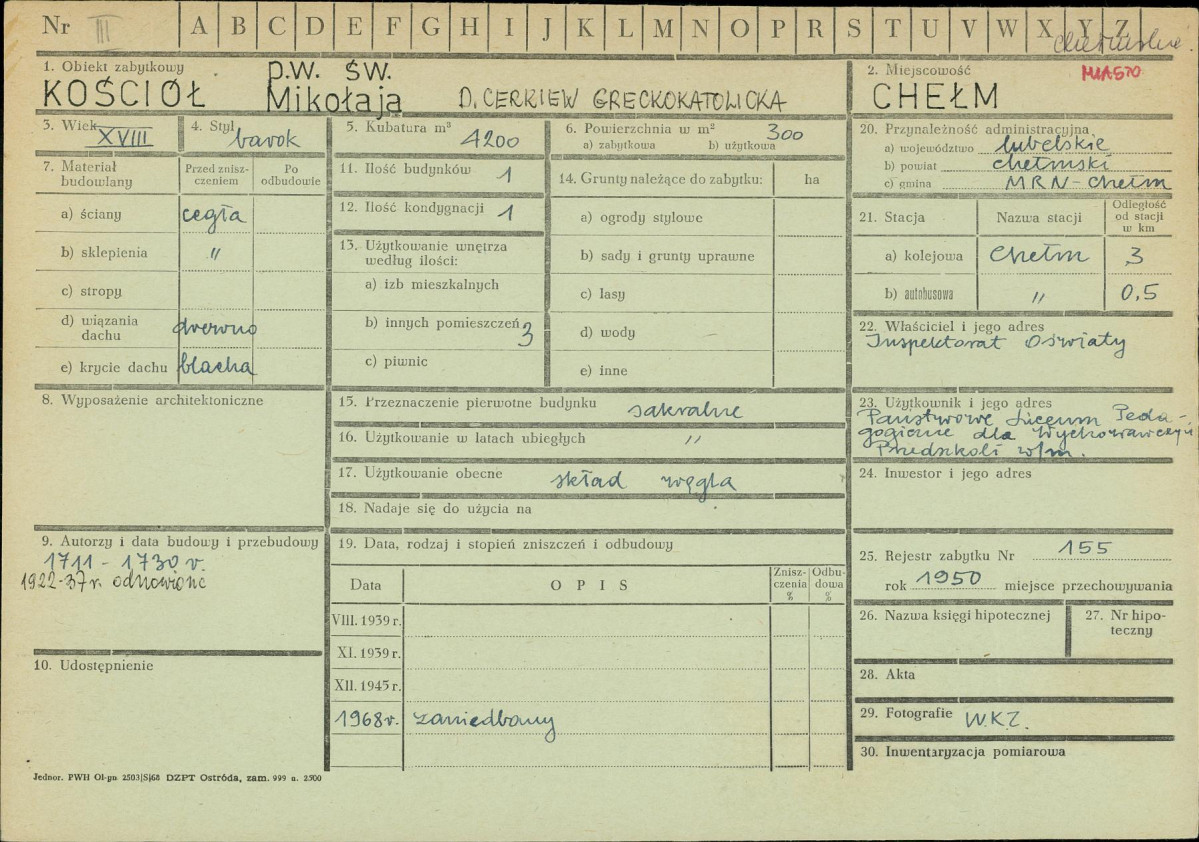 Nr III A B C D E F G H I J K L M N O P R S T U V W X Y Z
chełmskie
1. Obiekt zabytkowy
KOŚCIÓŁ p.w. św. Mikołaja D. CERKIEW GRECKOKATOLICKA
2. Miejscowość MIASTO
CHEŁM
3. Wiek XVIII
4. Styl barok
5. Kubatura m³ 4200
6. Powierzchnia w m² 300
a) zabytkowa b) użytkowa
7. Materiał budowlany
Przed zniszczeniem
Po odbudowie
a) ściany cegła
b) sklepienia "
c) stropy
d) wiązania dachu drewno
e) krycie dachu blacha
8. Wyposażenie architektoniczne
9. Autorzy i data budowy i przebudowy
1711 - 1730 r.
1922-37 r. odnowione
10. Udostępnienie
11. Ilość budynków 1
12. Ilość kondygnacji 1
13. Użytkowanie wnętrza według ilości:
a) izb mieszkalnych
b) innych pomieszczeń 3
c) piwnic
14. Grunty należące do zabytku: ha
a) ogrody stylowe
b) sady i grunty uprawne
c) lasy
d) wody
e) inne
15. Przeznaczenie pierwotne budynku sakralne
16. Użytkowanie w latach ubiegłych "
17. Użytkowanie obecne skład węgla
18. Nadaje się do użycia na
19. Data, rodzaj i stopień zniszczeń i odbudowy
Data
OPIS
Zniszczenia %
Odbudowa %
VIII. 1939 r.
XI. 1939 r.
XII. 1945 r.
1968 r. zaniedbany
20. Przynależność administracyjna
a) województwo lubelskie
b) powiat chełmski
c) gmina MRN - Chełm
21. Stacja
Nazwa stacji
Odległość od stacji w km
a) kolejowa Chełm 3
b) autobusowa " 0,5
22. Właściciel i jego adres
Inspektorat Oświaty
23. Użytkownik i jego adres
Państwowe Liceum Peda-
gogiczne dla Wychowawczyń
Przedszkoli w/m.
24. Inwestor i jego adres
25. Rejestr zabytku Nr 155
rok 1950 miejsce przechowywania
26. Nazwa księgi hipotecznej
27. Nr hipoteczny
28. Akta
29. Fotografie W.K.Z.
30. Inwentaryzacja pomiarowa
Jednor. PWH Ol-pn 2503|S|68 DZPT Ostróda, zam. 999 n. 2500